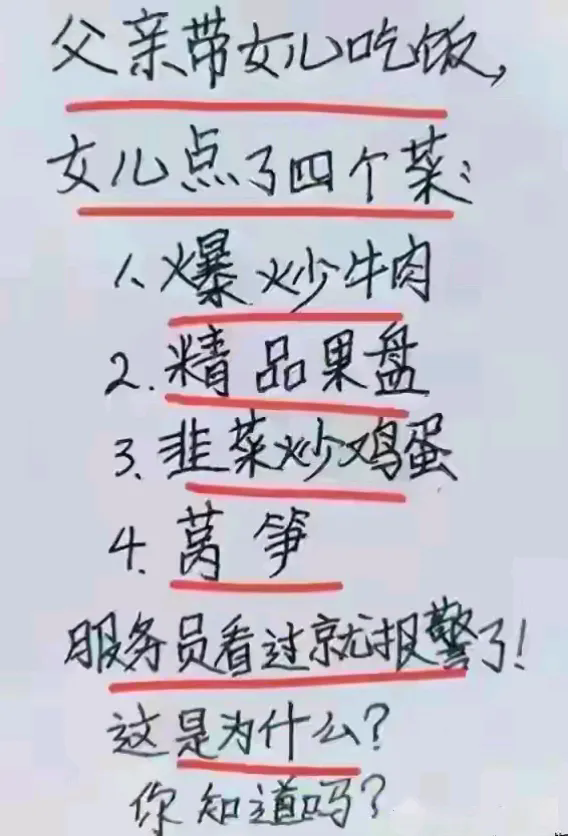 父亲带女儿吃饭,
女儿点了四个菜:
1.爆炒牛肉
2.精品果盘
3.韭菜炒鸡蛋
4.莴笋
服务员看过就报警了!
这是为什么?
你知道吗?